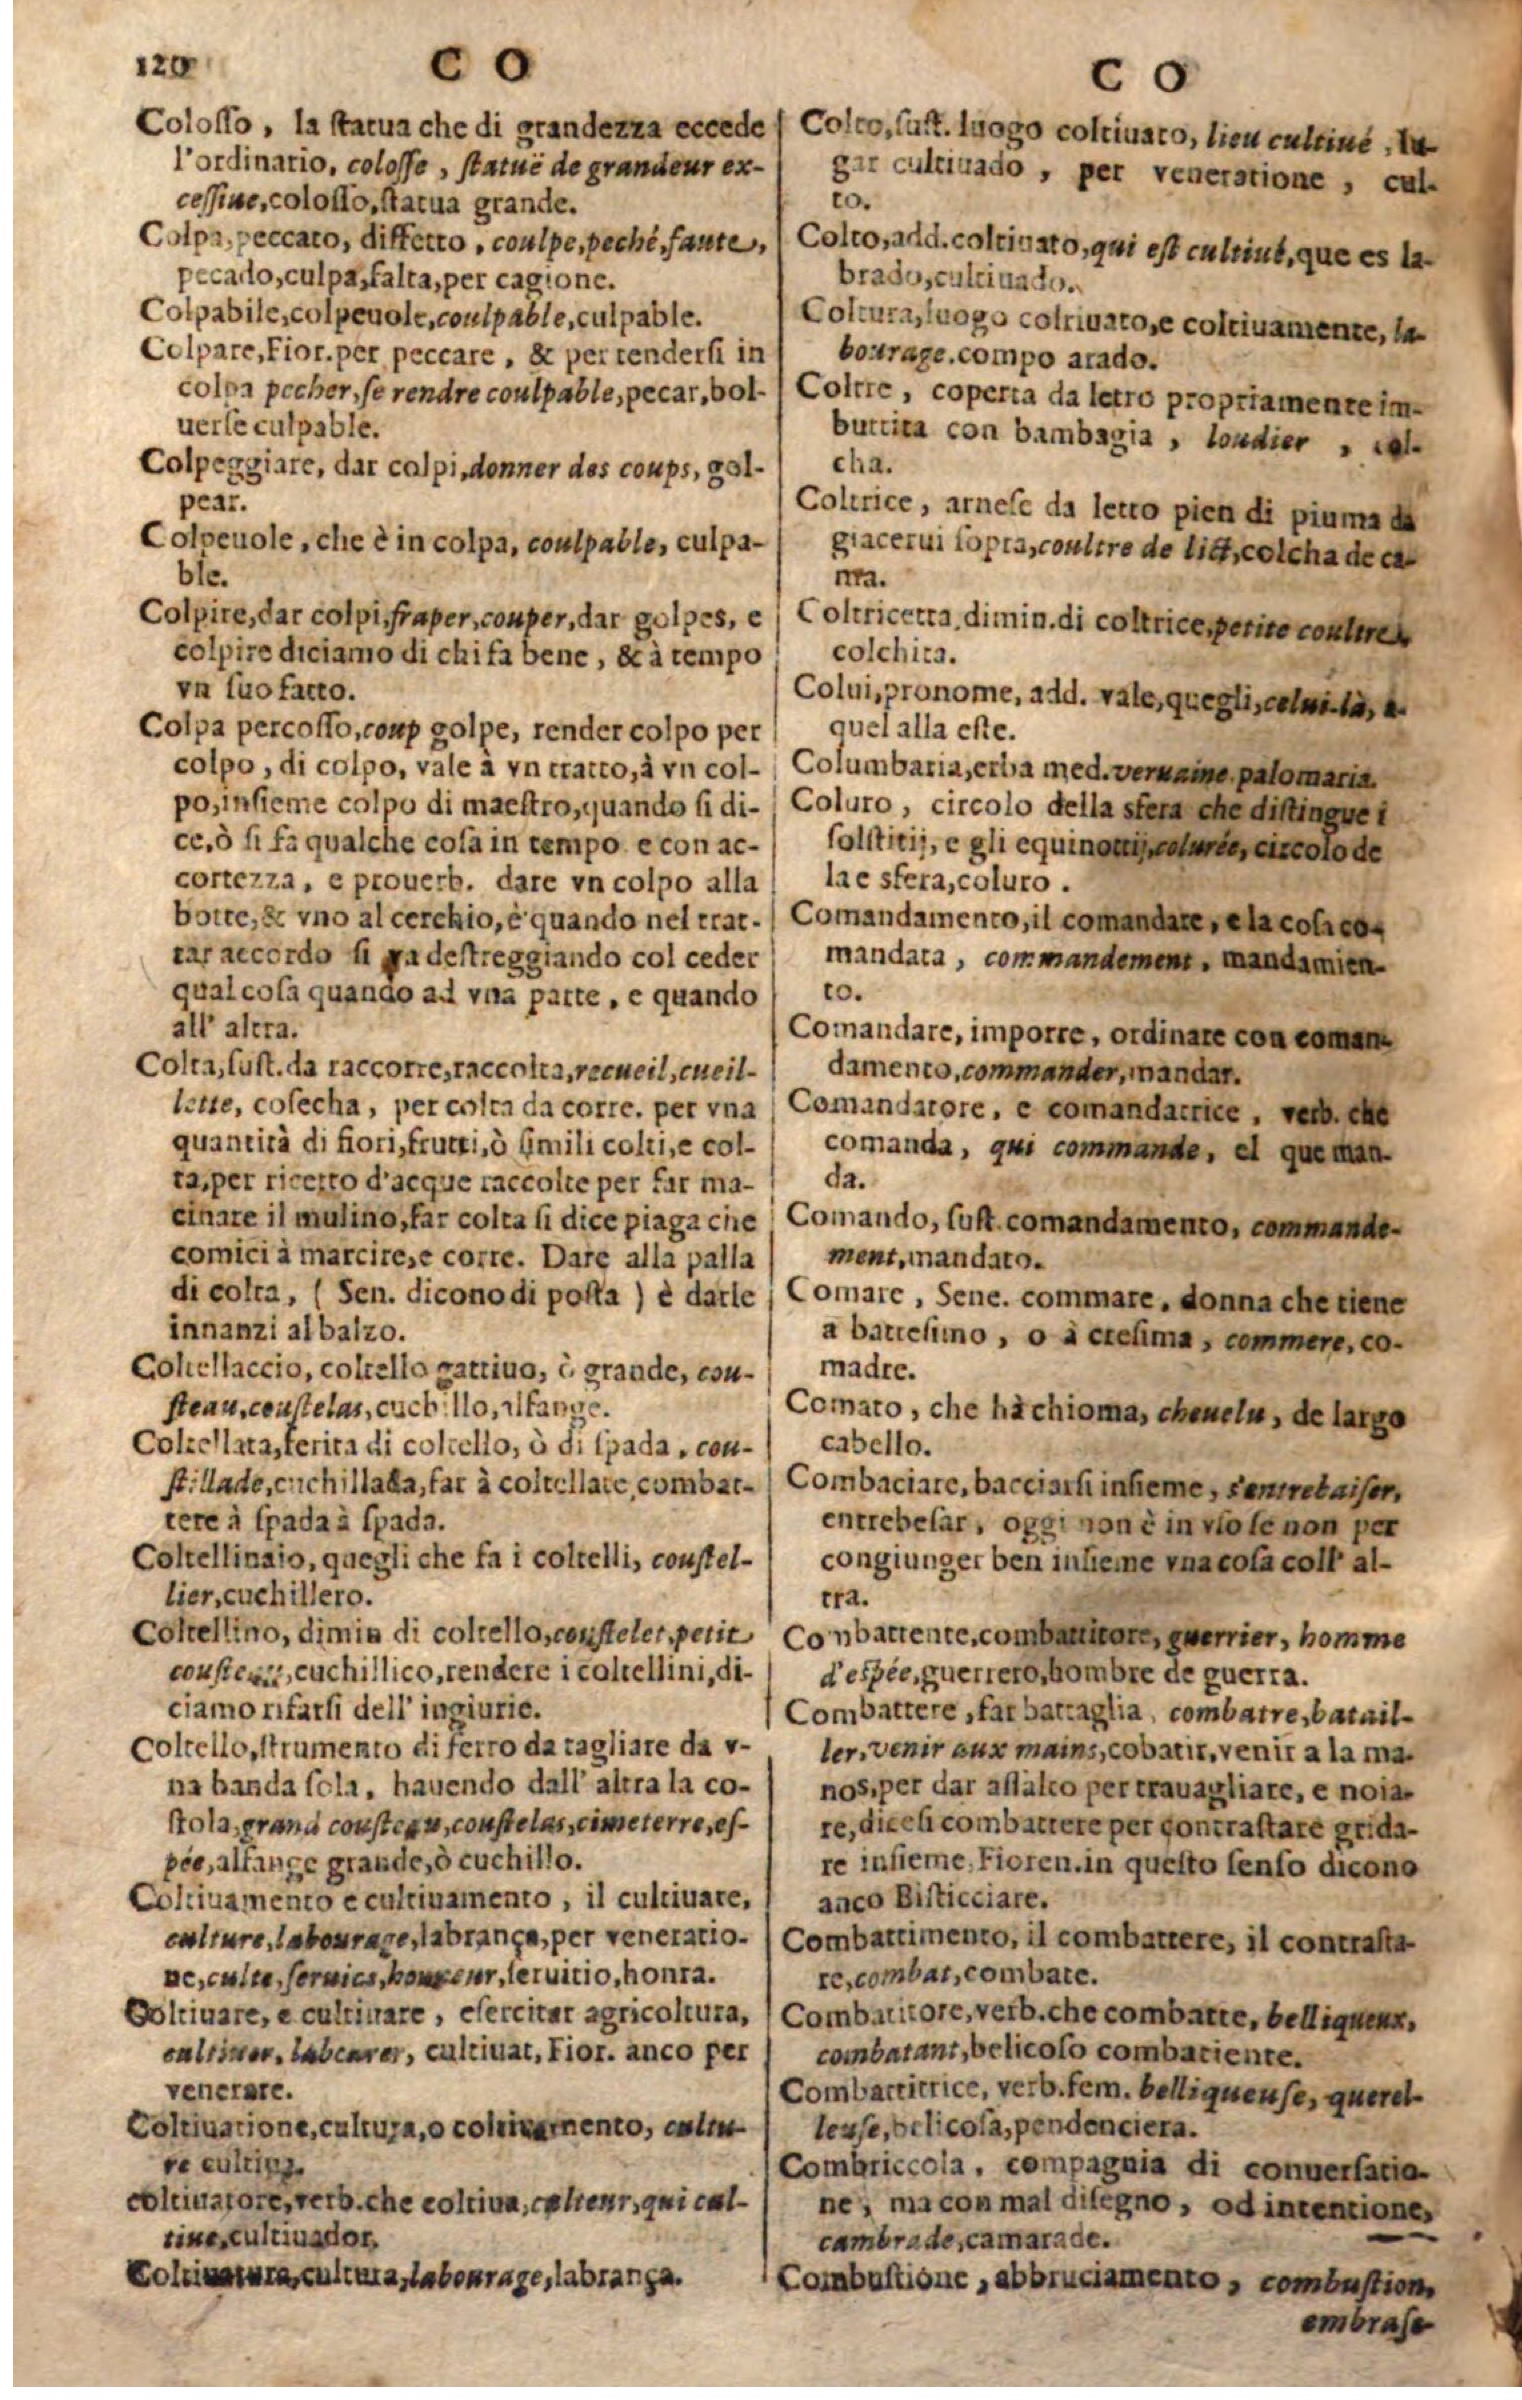 120 C O
Colosso, la statua che di grandezza eccede
l'ordinario, colosse, statuë de grandeur ex-
cessiue, colosso, statua grande.
Colpa, peccato, diffetto, coulpe, peché, faute,
pecado, culpa, falta, per cagione.
Colpabile, colpeuole, coulpable, culpable.
Colpare, Fior. per peccare, & per rendersi in
colpa pecher, se rendre coulpable, pecar, bol-
uerse culpable.
Colpeggiare, dar colpi, donner des coups, gol-
pear.
Colpeuole, che è in colpa, coulpable, culpa-
ble.
Colpire, dar colpi, fraper, couper, dar golpes, e
colpire diciamo di chi fa bene, & à tempo
vn suo fatto.
Colpa percosso, coup golpe, render colpo per
colpo, di colpo, vale à vn tratto, à vn col-
po, insieme colpo di maestro, quando si di-
ce, ò si fa qualche cosa in tempo e con ac-
cortezza, e prouerb. dare vn colpo alla
botte, & vno al cerchio, è quando nel trat-
tar accordo si va destreggiando col ceder
qual cosa quando ad vna parte, e quando
all' altra.
Colta, sust. da raccorre, raccolta, recueil, cueil-
lette, cosecha, per colta da corre. per vna
quantità di fiori, frutti, ò simili colti, e col-
ta, per ricetto d'acque raccolte per far ma-
cinare il mulino, far colta si dice piaga che
comici à marcire, e corre. Dare alla palla
di colta, ( Sen. dicono di posta ) è darle
innanzi al balzo.
Coltellaccio, coltello gattiuo, ò grande, cou-
steau, coustelas, cuchillo, alfange.
Coltellata, ferita di coltello, ò di spada, cou-
stillade, cuchillada, far à coltellate, combat-
tere à spada à spada.
Coltellinaio, quegli che fa i coltelli, coustel-
lier, cuchillero.
Coltellino, dimin di coltello, coustelet, petit
cousteau, cuchillico, rendere i coltellini, di-
ciamo rifarsi dell' ingiurie.
Coltello, strumento di ferro da tagliare da v-
na banda sola, hauendo dall' altra la co-
stola, grand cousteau, coustelas, cimeterre, es-
pée, alfange grande, ò cuchillo.
Coltiuamento e cultiuamento, il cultiuare,
culture, labourage, labrança, per veneratio-
ne, culte, seruice, honneur, seruitio, honra.
Coltiuare, e cultiuare, esercitar agricoltura,
cultiuer, labourer, cultiuar, Fior. anco per
venerare.
Coltiuatione, cultura, o coltiuamento, cultu-
re cultiua.
coltiuatore, verb. che coltiua, culteur, qui cul-
tiue, cultiuador.
Coltiuatura, cultura, labourage, labrança.
C O
Colto, sust. luogo coltiuato, lieu cultiué, lu-
gar cultiuado, per veneratione, cul-
to.
Colto, add. coltiuato, qui est cultiué, que es la-
brado, cultiuado.
Coltura, luogo coltiuato, e coltiuamente, la-
bourage. compo arado.
Coltre, coperta da letto propriamente im-
buttita con bambagia, loudier, col-
cha.
Coltrice, arnese da letto pien di piuma da
giacerui sopra, coultre de lict, colcha de ca-
ma.
Coltricetta, dimin. di coltrice, petite coultre,
colchita.
Colui, pronome, add. vale, quegli, celui-là, a-
quel alla este.
Columbaria, erba med. veruaine. palomaria.
Coluro, circolo della sfera che distingue i
solstitij, e gli equinottij, colurée, circolo de
la e sfera, coluro.
Comandamento, il comandare, e la cosa co-
mandata, commandement, mandamien-
to.
Comandare, imporre, ordinare con coman-
damento, commander, mandar.
Comandatore, e comandatrice, verb. che
comanda, qui commande, el que man-
da.
Comando, sust. comandamento, commande-
ment, mandato.
Comare, Sene. commare, donna che tiene
a battesimo, o à cresima, commere, co-
madre.
Comato, che hà chioma, cheuelu, de largo
cabello.
Combaciare, bacciarsi insieme, s'entrebaiser,
entrebesar, oggi non è in vso se non per
congiunger ben insieme vna cosa coll' al-
tra.
Combattente, combattitore, guerrier, homme
d'espée, guerrero, hombre de guerra.
Combattere, far battaglia, combatre, batail-
ler, venir aux mains, cobatir, venir a la ma-
nos, per dar assalto per trauagliare, e noia-
re, dicesi combattere per contrastare grida-
re insieme, Fioren. in questo senso dicono
anco Bisticciare.
Combattimento, il combattere, il contrasta-
re, combat, combate.
Combatitore, verb. che combatte, belliqueux,
combatant, belicoso combatiente.
Combattitrice, verb. fem. belliqueuse, querel-
leuse, belicosa, pendenciera.
Combriccola, compagnia di conuersatio-
ne, ma con mal disegno, od intentione,
cambrade, camarade.
Combustione, abbruciamento, combustion,
embrase-